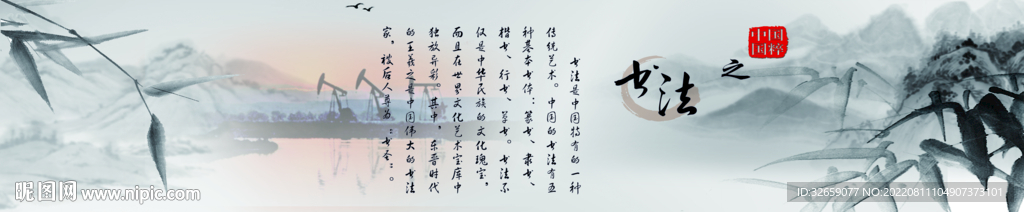 中国
国粹
之
书法
书法是中国特有的一种
传统艺术。中国的书法有五
种基本书体：篆书、隶书、
楷书、行书、草书。书法不
仅是中华民族的文化瑰宝，
而且在世界文化艺术宝库中
独放异彩。其中，东晋时代
的王羲之是中国伟大的书法
家，被后人尊为“书圣”。
昵图网 www.nipic.com
ID:32659077 NO:20220811104907373101